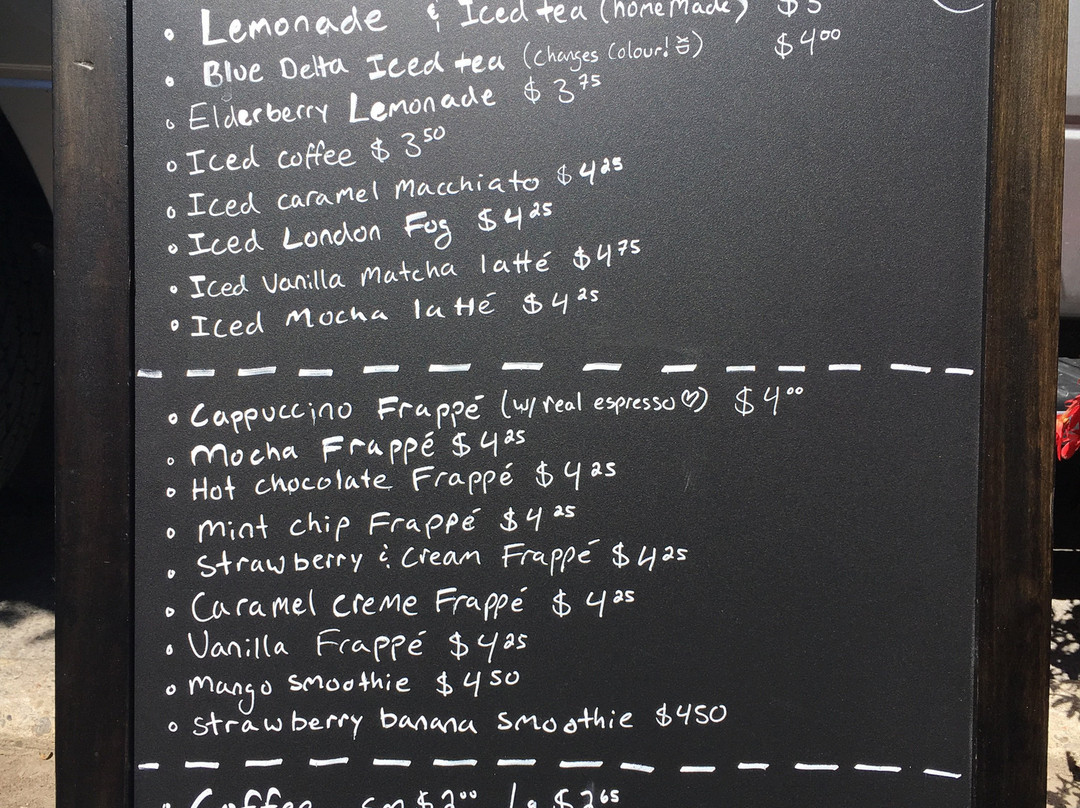 • Lemonade & Iced tea (homemade) $3
• Blue Delta Iced tea (changes Colour!) $4⁰⁰
• Elderberry Lemonade $3⁷⁵
• Iced coffee $3⁵⁰
• Iced caramel Macchiato $4²⁵
• Iced London Fog $4²⁵
• Iced Vanilla Matcha latté $4⁷⁵
• Iced Mocha latté $4²⁵
• Cappuccino Frappé (w/ real espresso♡) $4⁰⁰
• Mocha Frappé $4²⁵
• Hot chocolate Frappé $4²⁵
• Mint chip Frappé $4²⁵
• Strawberry & Cream Frappé $4²⁵
• Caramel Creme Frappé $4²⁵
• Vanilla Frappé $4²⁵
• Mango smoothie $4⁵⁰
• Strawberry banana smoothie $450
• Coffee sm $2⁰⁰ lg $2⁶⁵